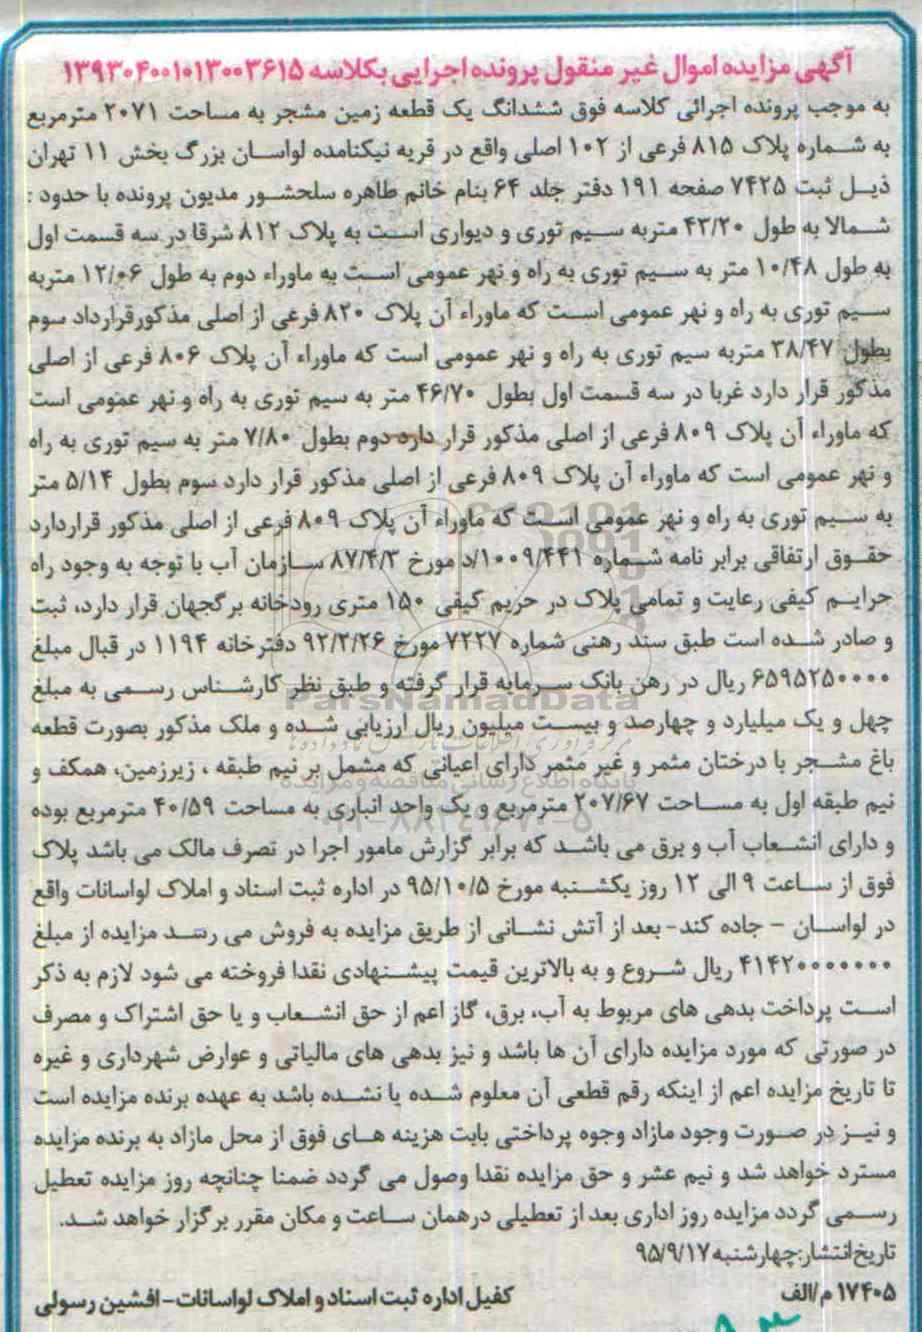 آگهی مزایده اموال غیر منقول پرونده اجرایی بکلاسه ۱۳۹۳۰۴۰۰۱۰۱۳۰۰۳۶۱۵
به موجب پرونده اجرائی کلاسه فوق ششدانگ یک قطعه زمین مشجر به مساحت ۲۰۷۱ مترمربع
به شماره پلاک ۸۱۵ فرعی از ۱۰۲ اصلی واقع در قریه نیکنامده لواسان بزرگ بخش ۱۱ تهران
ذیل ثبت ۷۴۲۵ صفحه ۱۹۱ دفتر جلد ۶۴ بنام خانم طاهره سلحشور مدیون پرونده با حدود :
شمالا به طول ۴۳/۲۰ متربه سیم توری و دیواری است به پلاک ۸۱۲ شرقا در سه قسمت اول
به طول ۱۰/۴۸ متر به سیم توری به راه و نهر عمومی است به ماوراء دوم به طول ۱۲/۰۶ متربه
سیم توری به راه و نهر عمومی است که ماوراء آن پلاک ۸۲۰ فرعی از اصلی مذکورقرارداد سوم
بطول ۳۸/۴۷ متربه سیم توری به راه و نهر عمومی است که ماوراء آن پلاک ۸۰۶ فرعی از اصلی
مذکور قرار دارد غربا در سه قسمت اول بطول ۴۶/۷۰ متر به سیم توری به راه و نهر عمومی است
که ماوراء آن پلاک ۸۰۹ فرعی از اصلی مذکور قرار دارد دوم بطول ۷/۸۰ متر به سیم توری به راه
و نهر عمومی است که ماوراء آن پلاک ۸۰۹ فرعی از اصلی مذکور قرار دارد سوم بطول ۵/۱۴ متر
به سیم توری به راه و نهر عمومی است که ماوراء آن پلاک ۸۰۹ فرعی از اصلی مذکور قراردارد
حقوق ارتفاقی برابر نامه شماره ۱۰۰۹/۴۴۱/د مورخ ۸۷/۴/۳ سازمان آب با توجه به وجود راه
حرایم کیفی رعایت و تمامی پلاک در حریم کیفی ۱۵۰ متری رودخانه برگجهان قرار دارد، ثبت
و صادر شده است طبق سند رهنی شماره ۷۲۲۷ مورخ ۹۲/۲/۲۶ دفترخانه ۱۱۹۴ در قبال مبلغ
۶۵۹۵۲۵۰۰۰۰ ریال در رهن بانک سرمایه قرار گرفته و طبق نظر کارشناس رسمی به مبلغ
ParsNamadData
چهل و یک میلیارد و چهارصد و بیست میلیون ریال ارزیابی شده و ملک مذکور بصورت قطعه
باغ مشجر با درختان مثمر و غیر مثمر دارای اعیانی که مشمل بر نیم طبقه ، زیرزمین، همکف و
پایگاه اطلاع رسانی مناقصه و مزایده
نیم طبقه اول به مساحت ۲۰۷/۶۷ مترمربع و یک واحد انباری به مساحت ۴۰/۵۹ مترمربع بوده
و دارای انشعاب آب و برق می باشد که برابر گزارش مامور اجرا در تصرف مالک می باشد پلاک
فوق از ساعت ۹ الی ۱۲ روز یکشنبه مورخ ۹۵/۱۰/۵ در اداره ثبت اسناد و املاک لواسانات واقع
در لواسان – جاده کند- بعد از آتش نشانی از طریق مزایده به فروش می رسد مزایده از مبلغ
۴۱۴۲۰۰۰۰۰۰۰ ریال شروع و به بالاترین قیمت پیشنهادی نقدا فروخته می شود لازم به ذکر
است پرداخت بدهی های مربوط به آب، برق، گاز اعم از حق انشعاب و یا حق اشتراک و مصرف
در صورتی که مورد مزایده دارای آن ها باشد و نیز بدهی های مالیاتی و عوارض شهرداری و غیره
تا تاریخ مزایده اعم از اینکه رقم قطعی آن معلوم شده یا نشده باشد به عهده برنده مزایده است
و نیز در صورت وجود مازاد وجوه پرداختی بابت هزینه های فوق از محل مازاد به برنده مزایده
مسترد خواهد شد و نیم عشر و حق مزایده نقدا وصول می گردد ضمنا چنانچه روز مزایده تعطیل
رسمی گردد مزایده روز اداری بعد از تعطیلی درهمان ساعت و مکان مقرر برگزار خواهد شد.
تاریخ انتشار:چهارشنبه ۹۵/۹/۱۷
۱۷۴۰۵ م/الف
کفیل اداره ثبت اسناد و املاک لواسانات- افشین رسولی